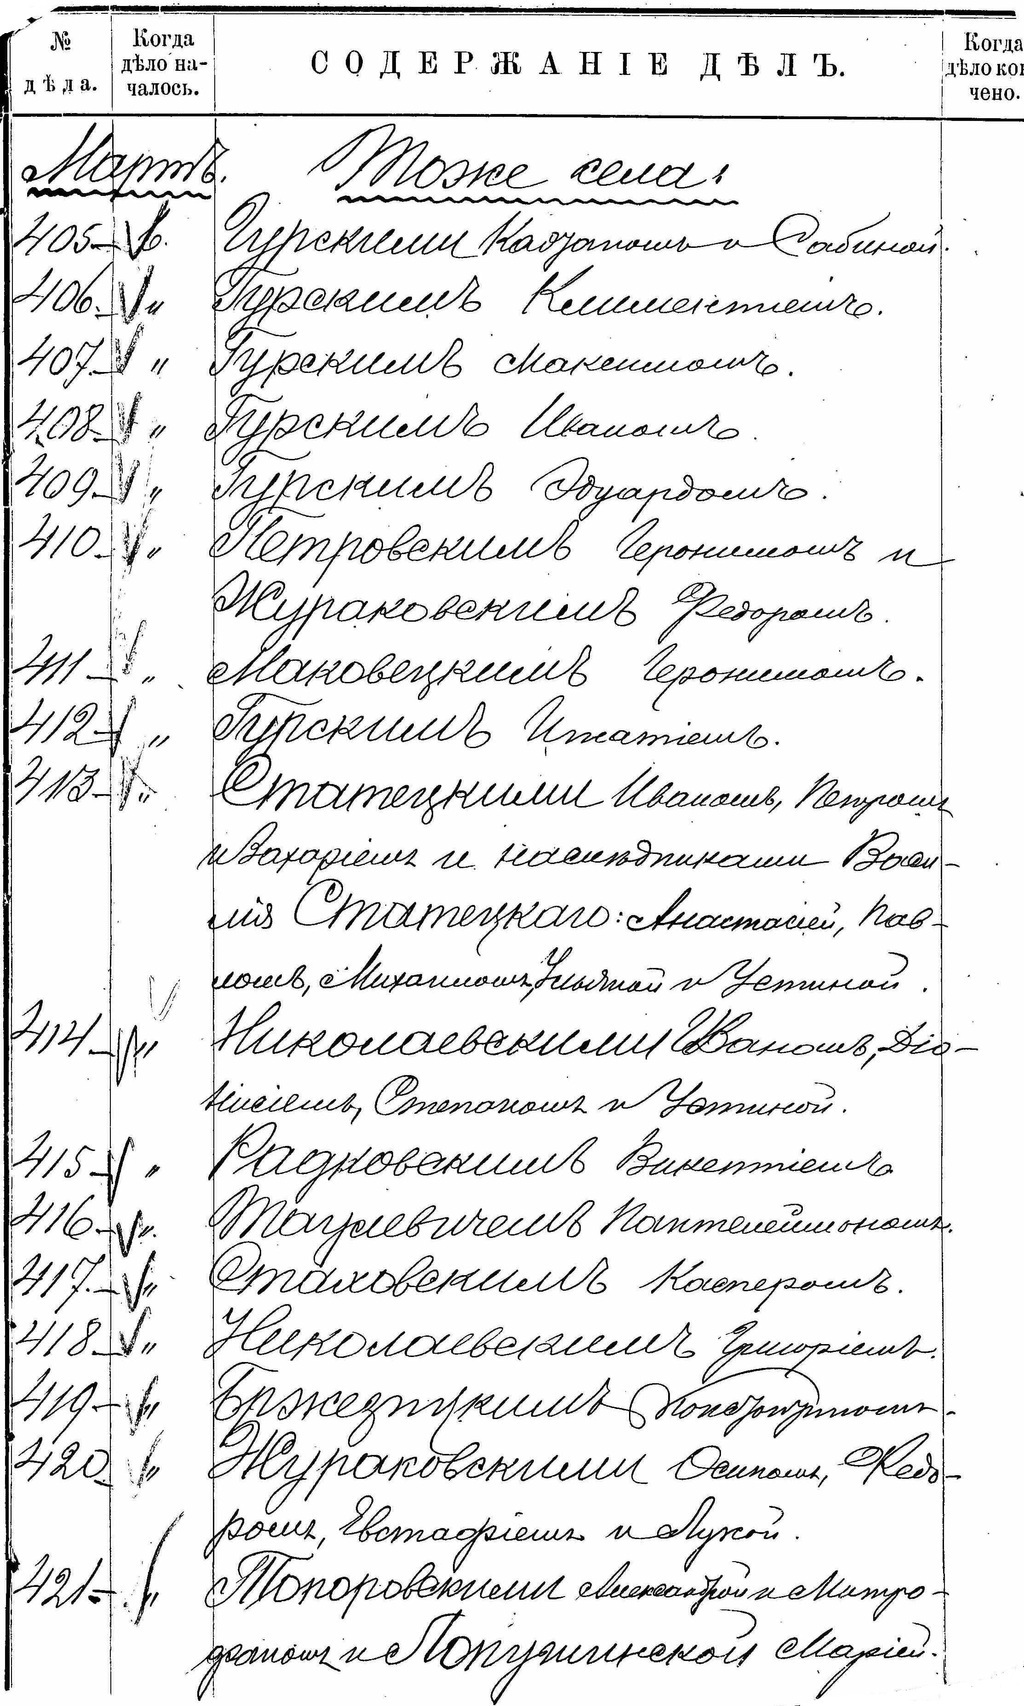 № дѣла.
Когда дѣло началось.
СОДЕРЖАНІЕ ДѢЛЪ.
Когда дѣло кон чено.
Мартъ. Тоже села:
405 Гурскими Каэтаномъ и Сабиной.
406 " Гурскимъ Климентіемъ.
407 " Гурскимъ Максимомъ.
408 " Гурскимъ Иваномъ.
409 " Гурскимъ Эдуардомъ.
410 " Петровскимъ Геронимомъ и
Жураковскимъ Федоромъ.
411 " Маковецкимъ Геронимомъ.
412 " Гурскимъ Игнатіемъ.
413 " Статецкими Иваномъ, Петромъ
и Захаріемъ и наслѣдниками Васи-
лія Статецкаго: Анастасіей, Пав-
ломъ, Михаиломъ, Ульяной и Устиной.
414 " Николаевскими Иваномъ, Діо-
нисіемъ, Степаномъ и Устиной.
415 " Радковскимъ Викентіемъ
416 " Пантелеймономъ.
417. " Стаховскимъ Касперомъ.
418 " Николаевскимъ Григоріемъ.
419 "
420 " Жураковскими Осипомъ, Федо-
ромъ, Евстафіемъ и Лукой.
421 " Топоровскими Александрой и Митро-
фаномъ и Марией.